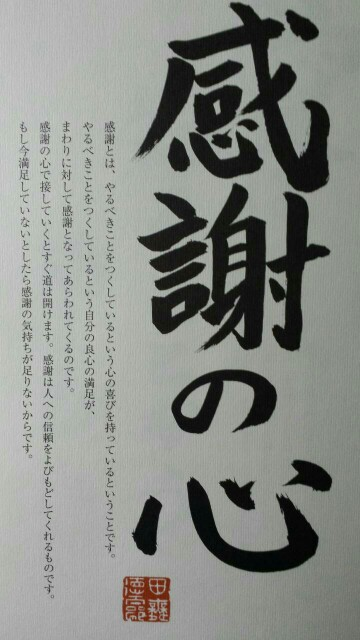 感謝の心
感謝とは、やるべきことをつくしているという心の喜びを持っているということです。
やるべきことをつくしているという自分の良心の満足が、
まわりに対して感謝となってあらわれてくるのです。
感謝の心で接していくとすぐ道は開けます。感謝は人への信頼をよびもどしてくれるものです。
もし今満足していないとしたら感謝の気持ちが足りないからです。